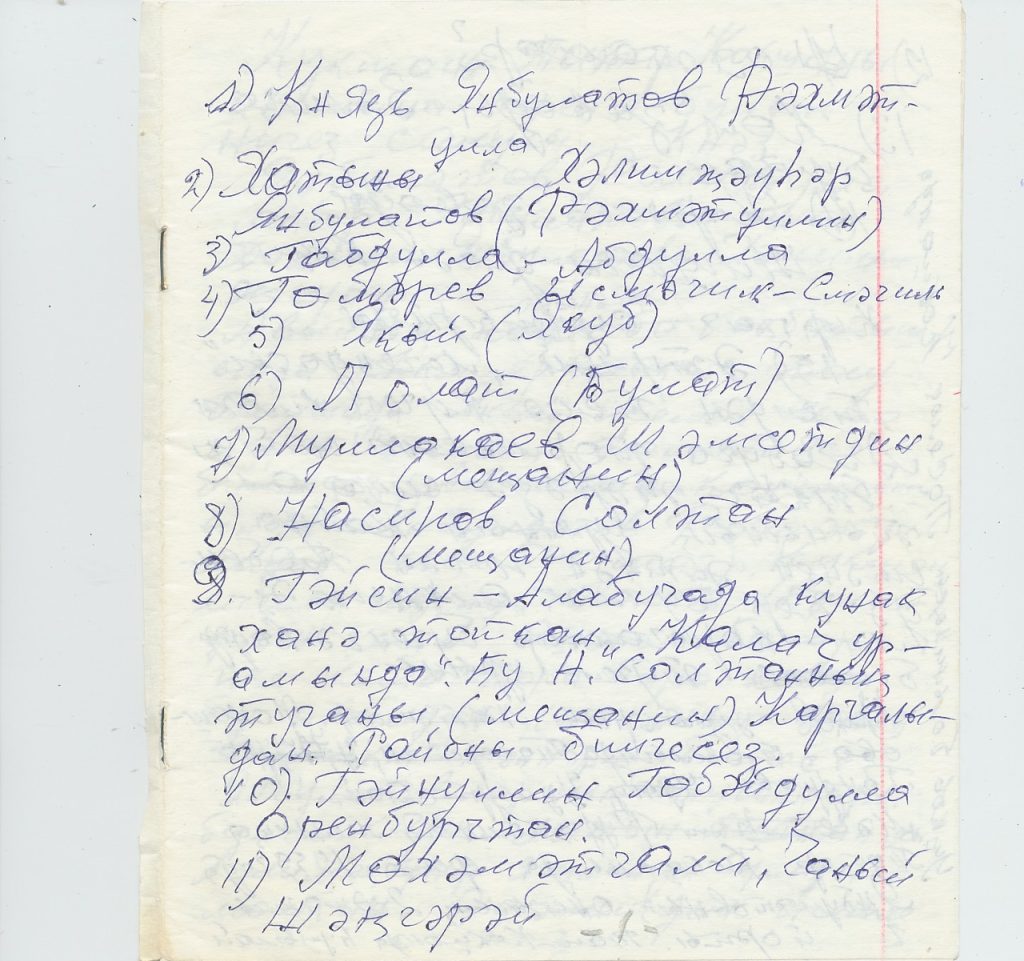 1) Князь Янбулатов Рәхмәт-
улла
2) Хатыны Хәлимҗәүһәр
Янбулатов (Рәхмәтуллин)
3) Габдулла - Абдулла
4) Гомәрев Ысмәчик - Смәчиль
5) Якый (Якуб)
6) Полат (Булат)
7) Муллакаев Шәмсетдин
(мещанин)
8) Насиров Солтан
(мещанин)
9. Гәйсин - Алабугада кунак
ханә тоткан „Калач ур-
амында". Бу Н. Солтанның
туганы (мещанин) Каргалы-
дан. Районы билгесез.
10) Гәйнуллин Гобәйдулла
Оренбургтан.
11) Мөхәмәтгали, Ганый
Шәңгәрәй
-1-